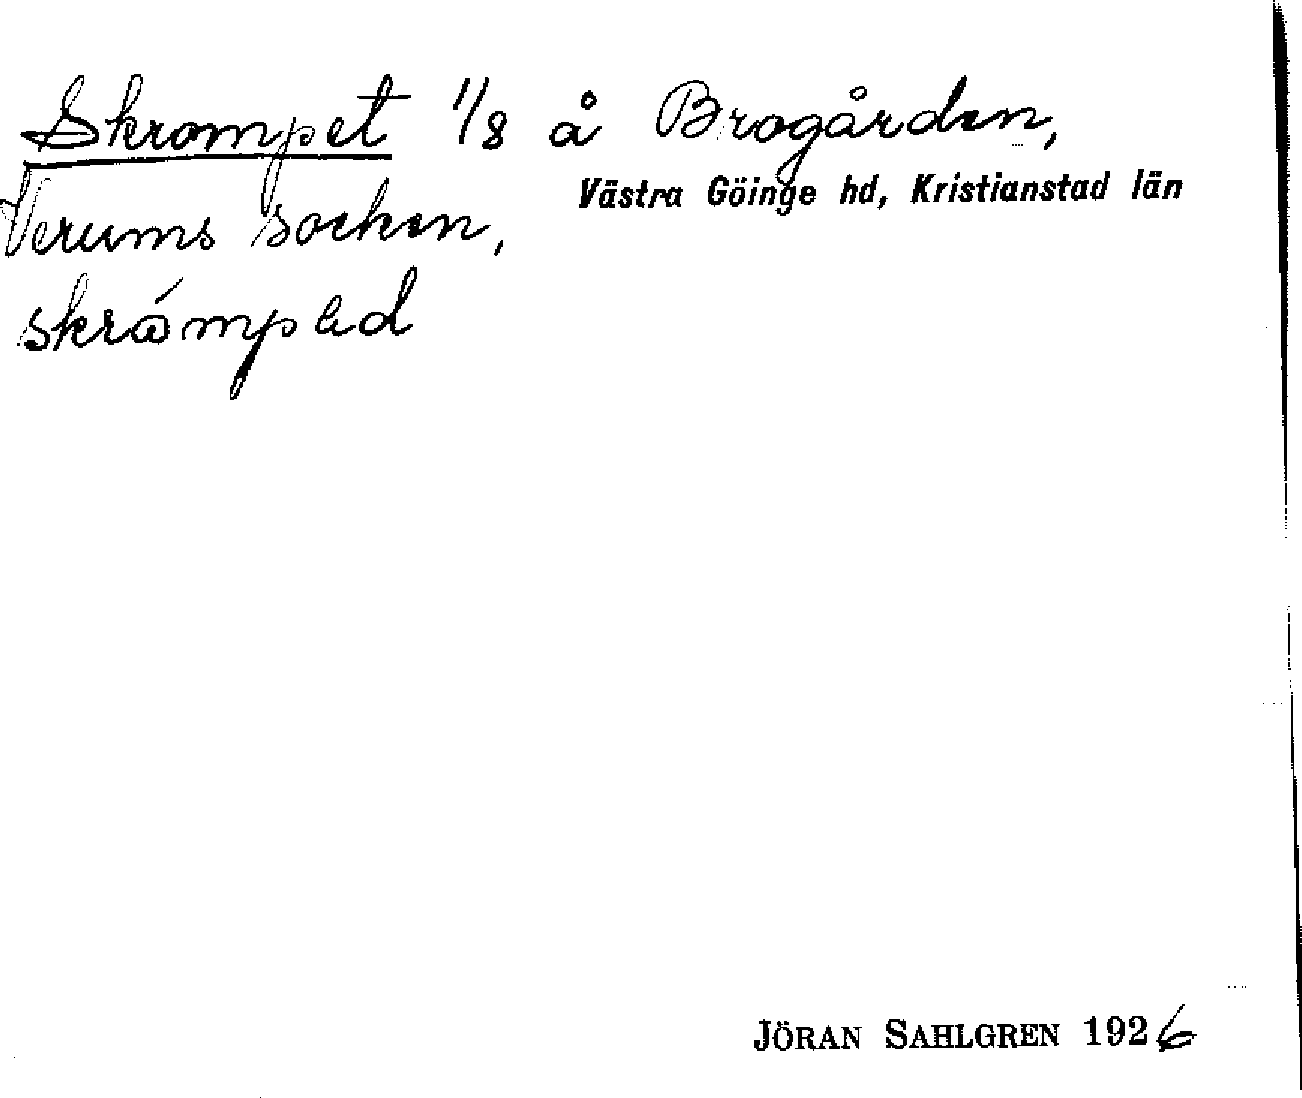 Skrompet 1/8 å Brogården,
Västra Göinge hd, Kristianstad län
Verums socken,
skråmpəd
JÖRAN SAHLGREN 1926